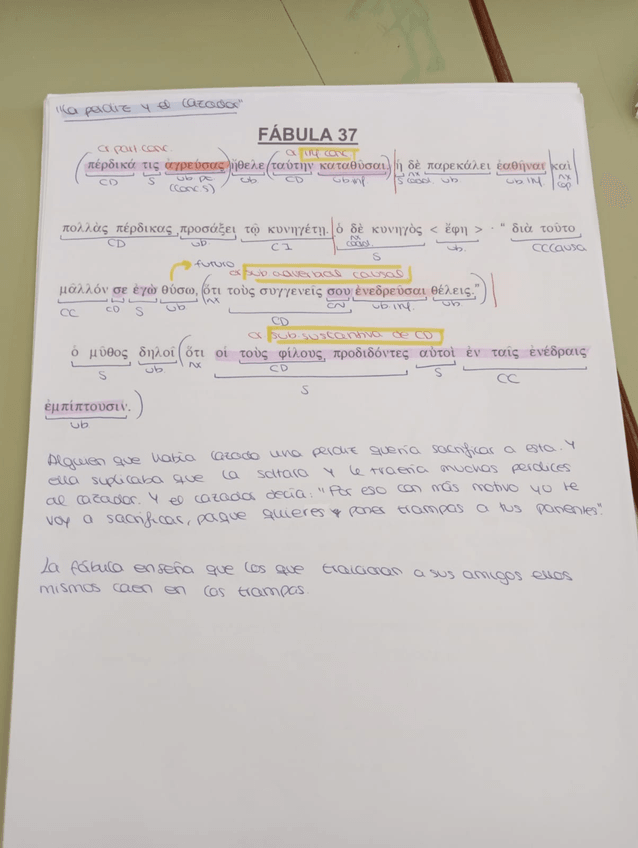 "La perdiz y el cazador"
FÁBULA 37
or part conc. or inf conc
(πέρδικά τις ἀγρεύσας) ἤθελε (ταύτην καταθῦσαι.) ἡ δὲ παρεκάλει ἐαθῆναι καὶ
CD S vb pc (conc S) vb CD vb inf S nx coord. vb vb inf nx cop
πολλὰς πέρδικας προσάξει τῷ κυνηγέτῃ. ὁ δὲ κυνηγὸς < ἔφη > · " διὰ τοῦτο
CD vb. CI nx coord. S vb. CCCausa
futuro or sub adverbial causal
μᾶλλόν σε ἐγὼ θύσω, (ὅτι τοὺς συγγενεῖς σου ἐνεδρεῦσαι θέλεις.")
CC CD S vb nx CD CN vb inf. vb.
or sub sustantiva de CD
ὁ μῦθος δηλοῖ (ὅτι οἱ τοὺς φίλους προδιδόντες αὐτοὶ ἐν ταῖς ἐνέδραις
S vb. nx CD S S CC
ἐμπίπτουσιν.)
vb
Alguien que había cazado una perdiz quería sacrificar a esta. Y
ella suplicaba que la soltara y le traería muchas perdices
al cazador. Y el cazador decía: "Por eso con más motivo yo te
voy a sacrificar, porque quieres poner trampas a tus parientes".
La fábula enseña que los que traicionan a sus amigos ellos
mismos caen en las trampas.